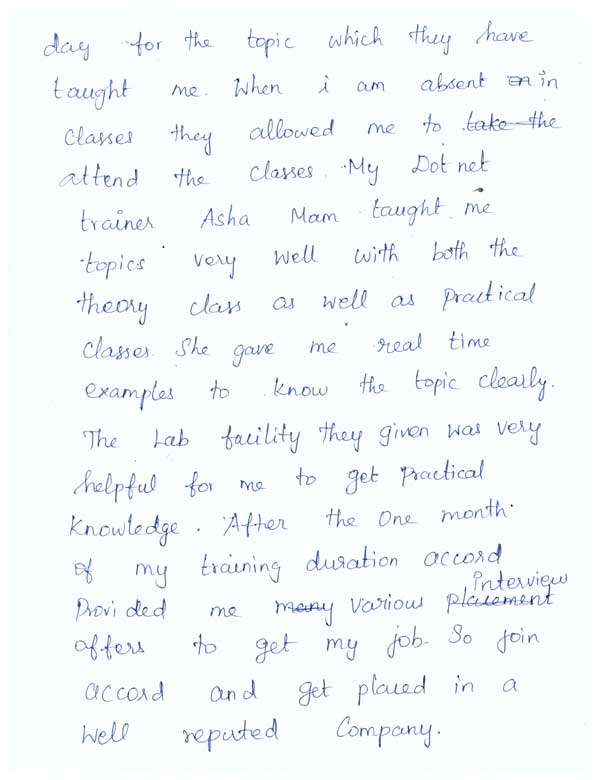 day for the topic which they have
taught me. When i am absent on in
classes they allowed me to take the
attend the classes. My Dot net
trainer Asha Mam taught me
topics very well with both the
theory class as well as practical
classes. She gave me real time
examples to know the topic clearly.
The Lab facility they given was very
helpful for me to get practical
knowledge. After the one month
of my training duration accord
interview
provided me many various placement
offers to get my job. So join
accord and get placed in a
well reputed Company.